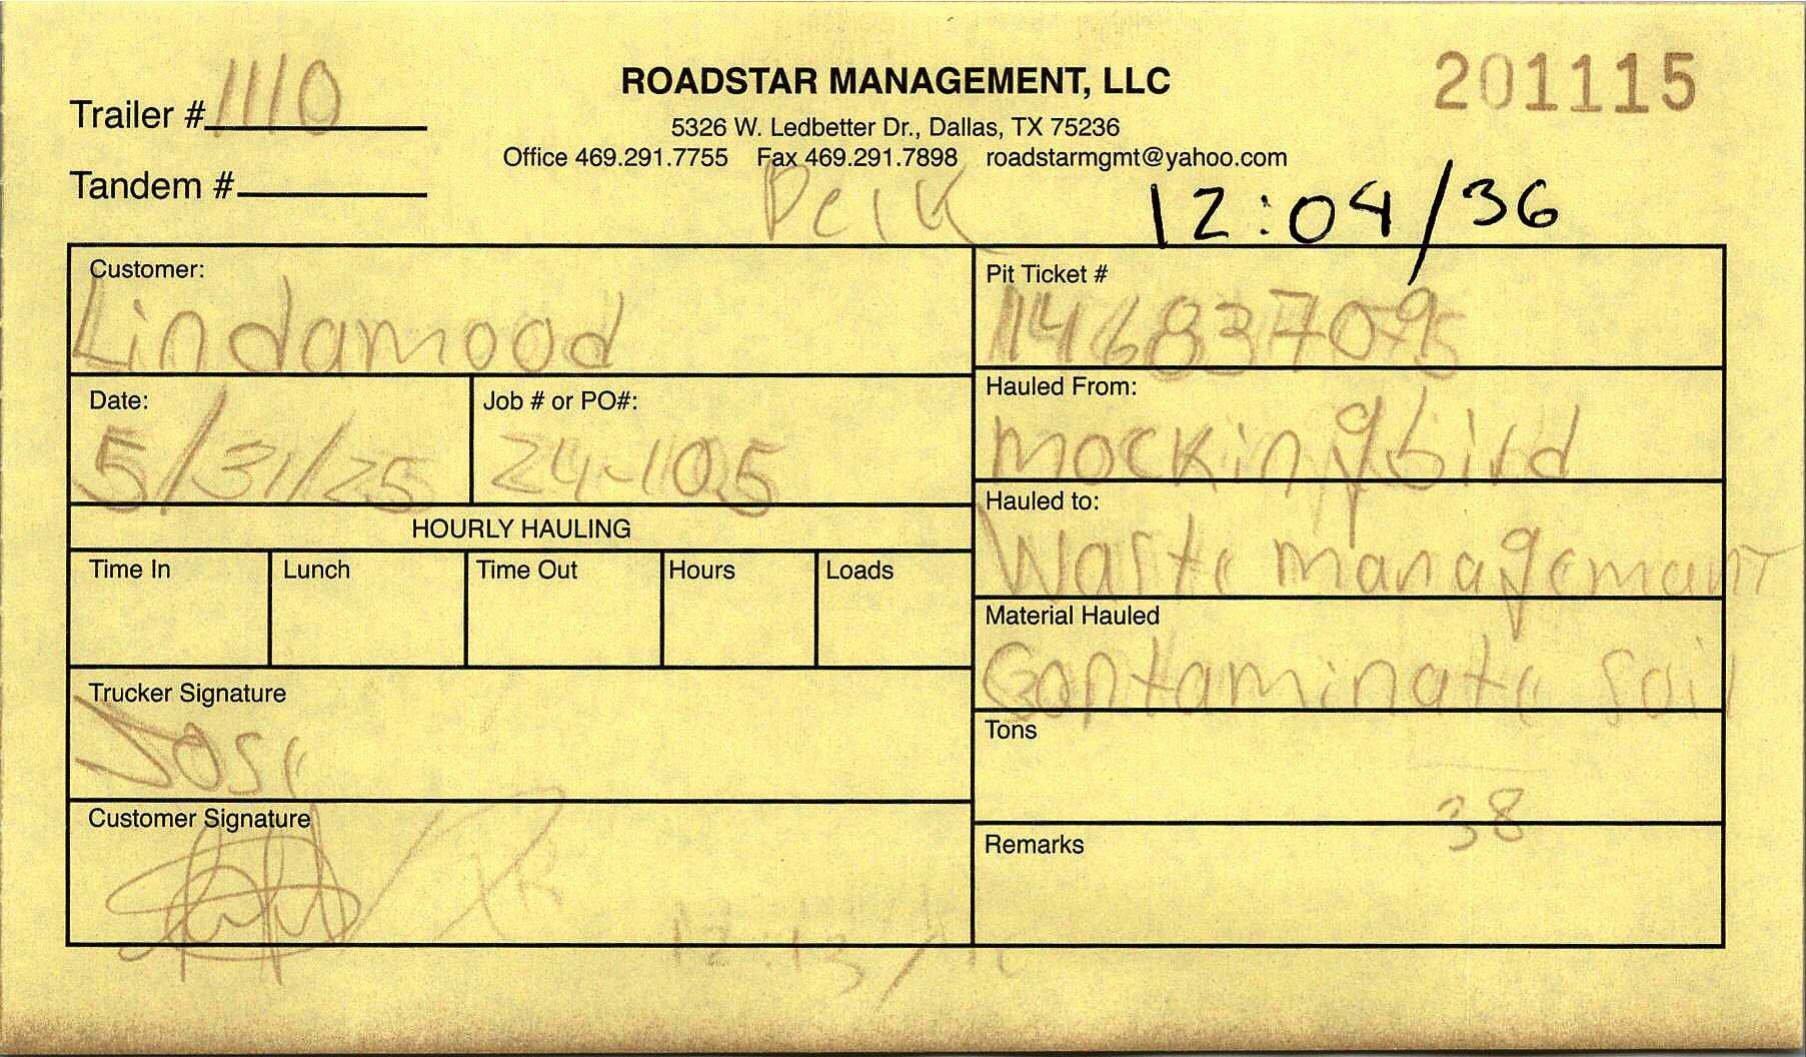 Trailer # 1110
ROADSTAR MANAGEMENT, LLC
201115
5326 W. Ledbetter Dr., Dallas, TX 75236
Office 469.291.7755 Fax 469.291.7898 roadstarmgmt@yahoo.com
Tandem #
12:04/36
Customer:
Lindamood
Pit Ticket #
Date:
5/31/25
Job # or PO#:
24-105
Hauled From:
mockingbird
HOURLY HAULING
Hauled to:
Waste management
Time In
Lunch
Time Out
Hours
Loads
Material Hauled
Contaminate Soil
Trucker Signature
Jose
Tons
38
Customer Signature
Remarks